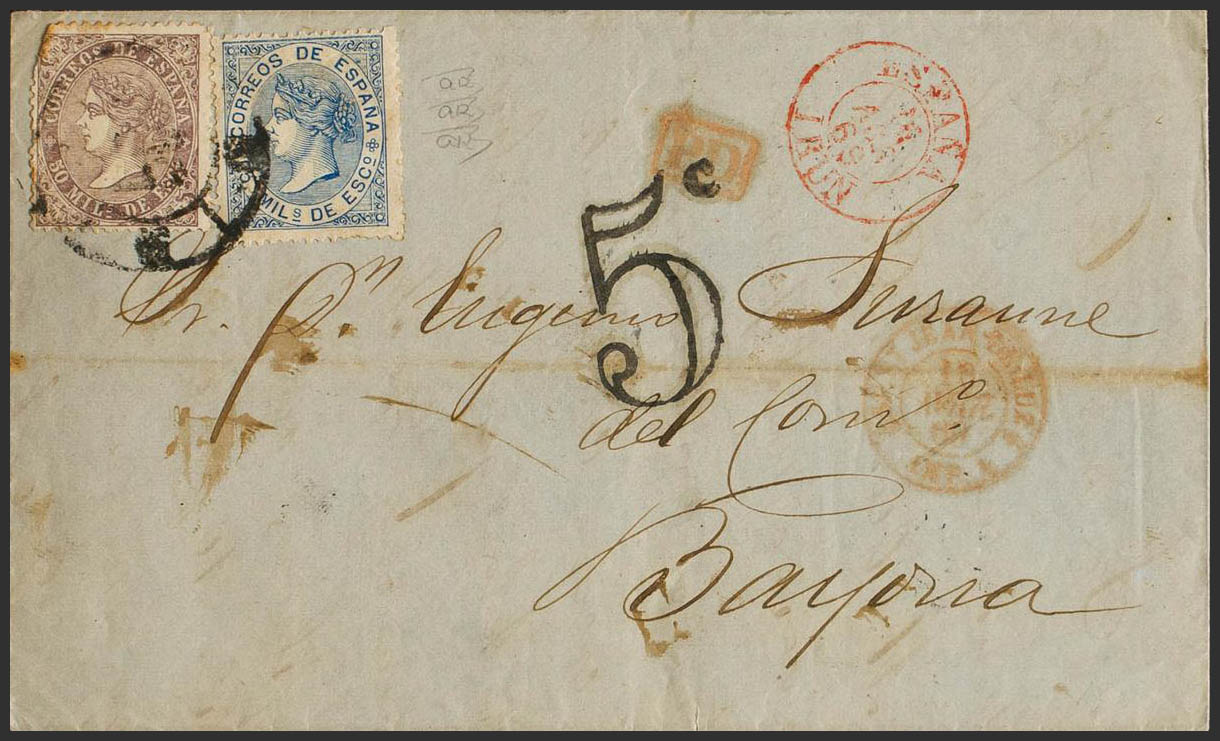 CORREOS DE ESPAÑA
50 MILS DE
CORREOS DE ESPAÑA
MILS DE ESCO
PD
ESPAÑA
IRUN
5c
Sr. Dn. Eugenio Suzanne
del Como.
Bayona